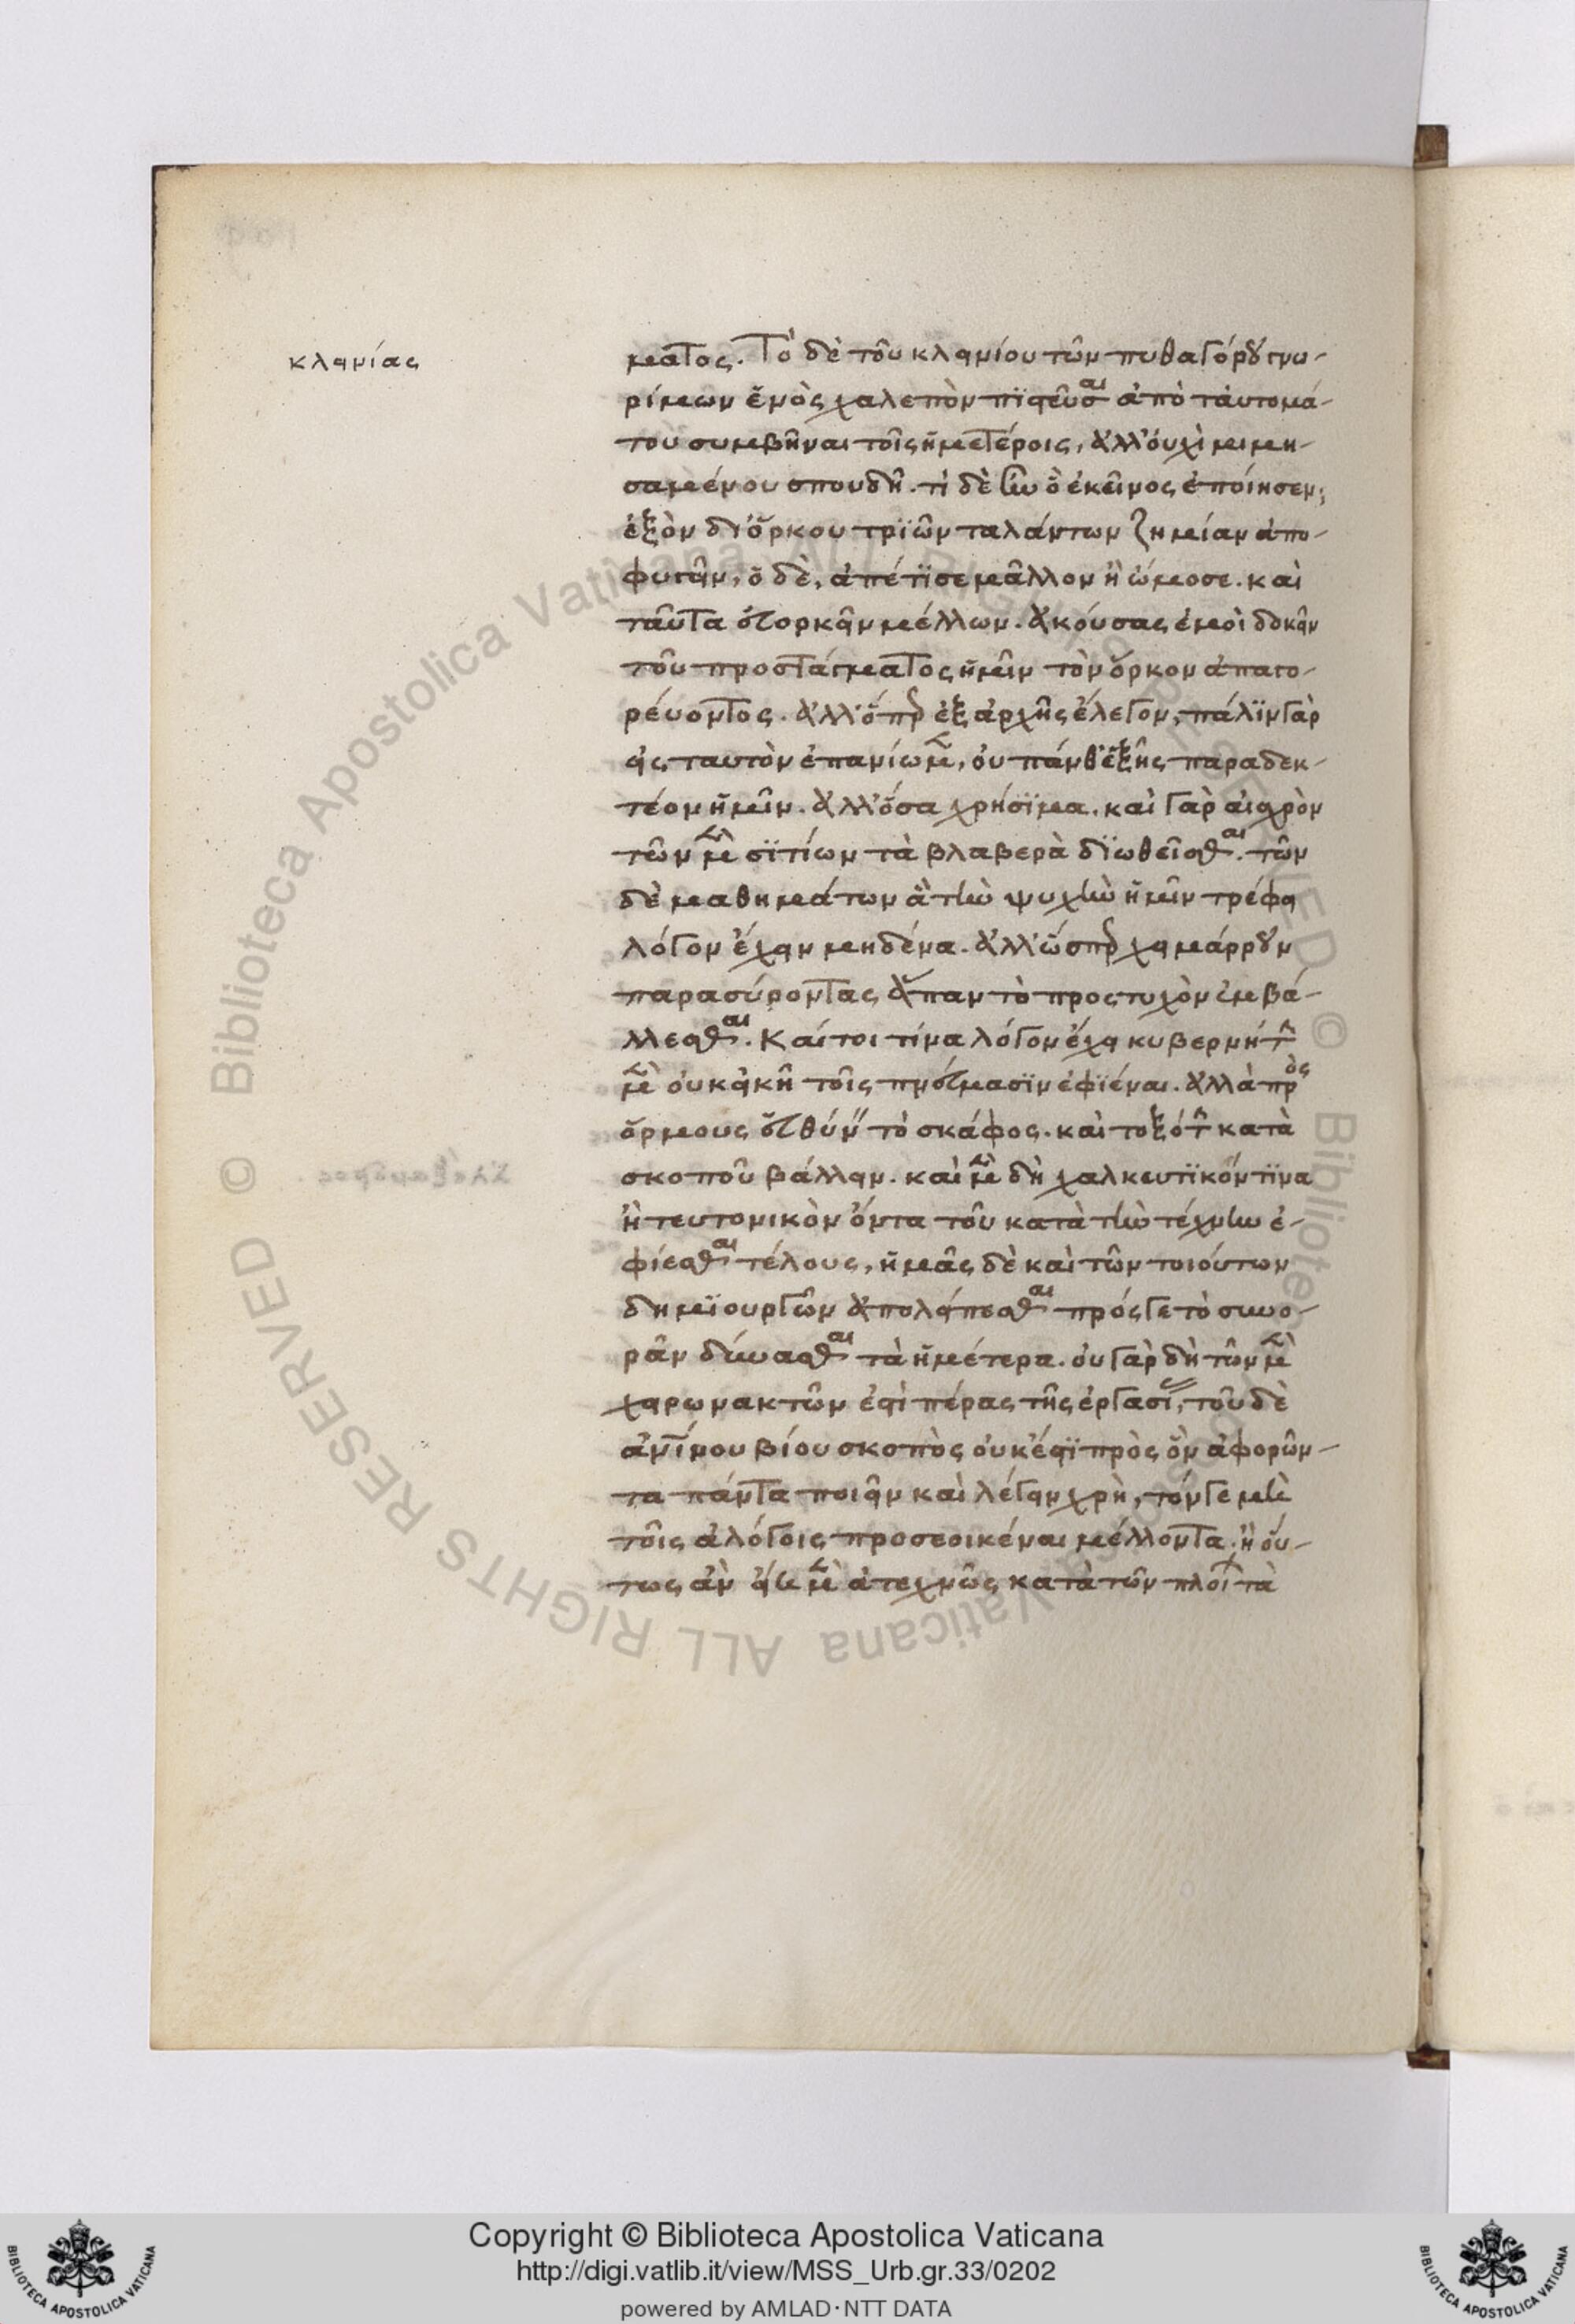 κλεινίας
ματος. Τὸ δὲ τοῦ κλεινίου τῶν πυθαγόρου γνω-
ρίμων ἑνὸς χαλεπὸν πιστεῦσαι ἀπὸ τἀυτομά-
του συμβῆναι τοῖς ἡμετέροις, ἀλλ' ὀυχὶ μιμη-
σαμένου σπουδῆ. τί δὲ ἦν ὃ ἐκεῖνος ἐποίησεν;
ἐξὸν δι' ὅρκου τριῶν ταλάντων ζημίαν ἀπο-
φυγεῖν, ὁ δὲ, ἀπέτισε μᾶλλον ἢ ὤμοσε. καὶ
ταῦτα ἐυορκεῖν μέλλων. ἀκούσας ἐμοὶ δοκεῖν
τοῦ προστάγματος ἡμῖν τὸν ὅρκον ἀπαγο-
ρέυοντος. ἀλλ' ὅπερ ἐξ ἀρχῆς ἔλεγον, πάλιν γὰρ
εἰς ταυτὸν ἐπανίωμεν, ὀυ πάνθ' ἑξῆς παραδεκ-
τέον ἡμῖν. ἀλλ' ὅσα χρήσιμα. καὶ γὰρ ἀισχρὸν
τῶν μὲν σιτίων τὰ βλαβερὰ διωθεῖσθαι. τῶν
δὲ μαθημάτων ἃ τὴν ψυχὴν ἡμῖν τρέφει
λόγον ἔχειν μηδένα. ἀλλ' ὥσπερ χειμάρρουν
παρασύροντας ἅπαν τὸ προστυχὸν ἐμβά-
λλεσθαι. Καίτοι τίνα λόγον ἔχει κυβερνήτην
μὲν ὀυκ εἰκῆ τοῖς πνέυμασιν ἐφιέναι. ἀλλὰ πρὸς
ὅρμους ἐυθύνειν τὸ σκάφος. καὶ τοξότην κατὰ
σκοποῦ βάλλειν. καὶ μὲν δὴ χαλκευτικόν τινα
ἢ τευτονικὸν ὄντα τοῦ κατὰ τὴν τέχνην ἐ-
φίεσθαι τέλους, ἡμᾶς δὲ καὶ τῶν τοιούτων
δημιουργῶν ἀπολείπεσθαι πρός γε τὸ συνο-
ρᾶν δύνασθαι τὰ ἡμέτερα. ὀυ γὰρ δὴ τῶν μὲν
χειρωνακτῶν ἐστὶ πέρας τῆς ἐργασίας, τοῦ δὲ
ἀνθρωπίνου βίου σκοπὸς ὀυκ ἔστι πρὸς ὃν ἀφορῶν-
τα πάντα ποιεῖν καὶ λέγειν χρὴ, τόν γε μὴ
τοῖς ἀλόγοις προσεοικέναι μέλλοντα. ἢ ὅυ-
τως ἂν εἴημεν ἀτεχνῶς κατὰ τῶν πλοίων τὰ
Copyright © Biblioteca Apostolica Vaticana
http://digi.vatlib.it/view/MSS_Urb.gr.33/0202
powered by AMLAD·NTT DATA